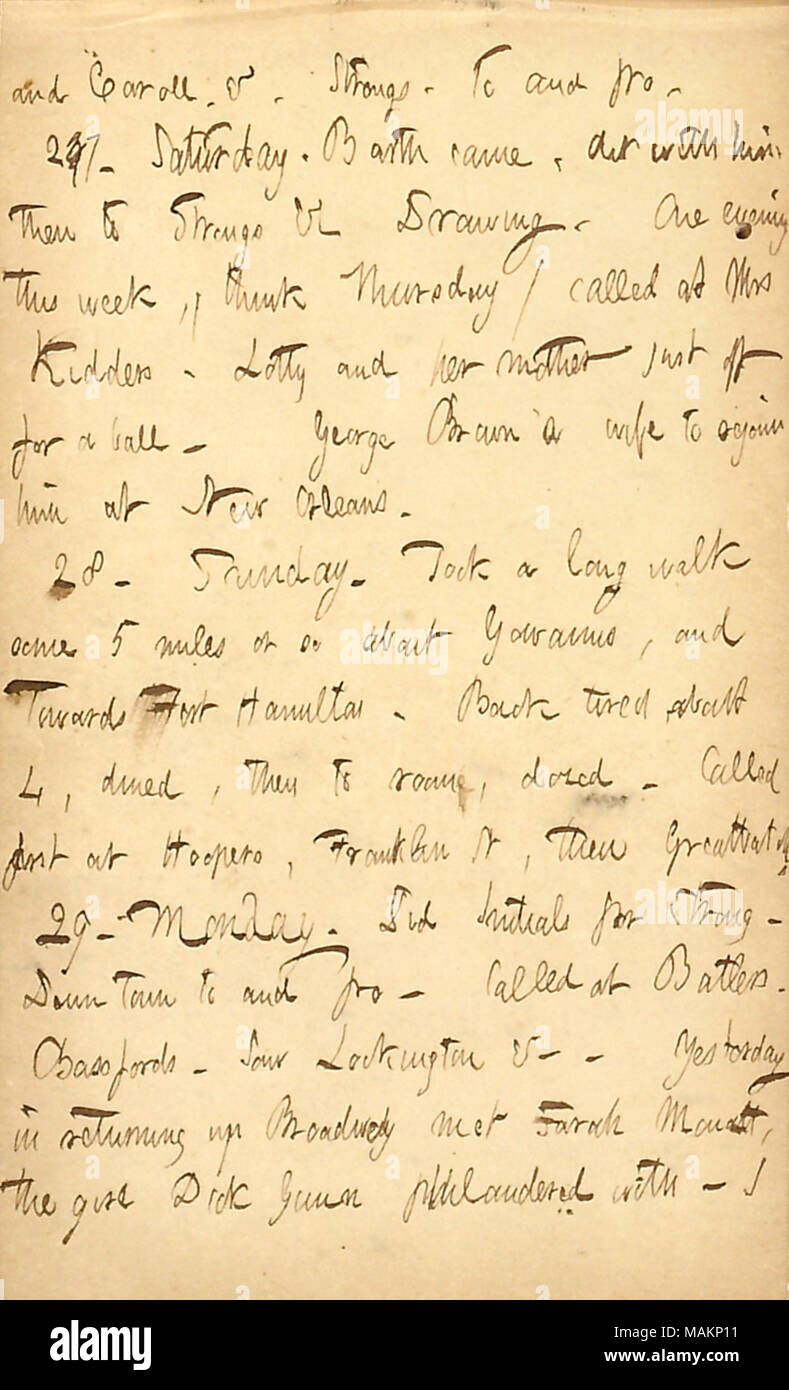 and Caroll, &. Strongs. To and fro.
27. Saturday. Barth came, out with him,
then to Strongs & Drawing. One evening
this week, (I think Thursday) called at Mrs
Kidders. Lotty and her mother just off
for a ball. George Brown's wife to rejoin
him at New Orleans.
28. Sunday. Took a long walk
some 5 miles or so about Gowanus, and
Towards Fort Hamilton. Back tired about
4, dined, then to room, dozed. Called
first at Hoopers, Franklin St, then Greatbatch
29. Monday. Did Initials for Strong.
Down town to and fro. Called at Butlers.
Bassfords. Saw Lockington &. Yesterday
in returning up Broadway met Sarah
the girl Dick Gunn philandered with. I
alamy
Image ID: MAKP11
www.alamy.com